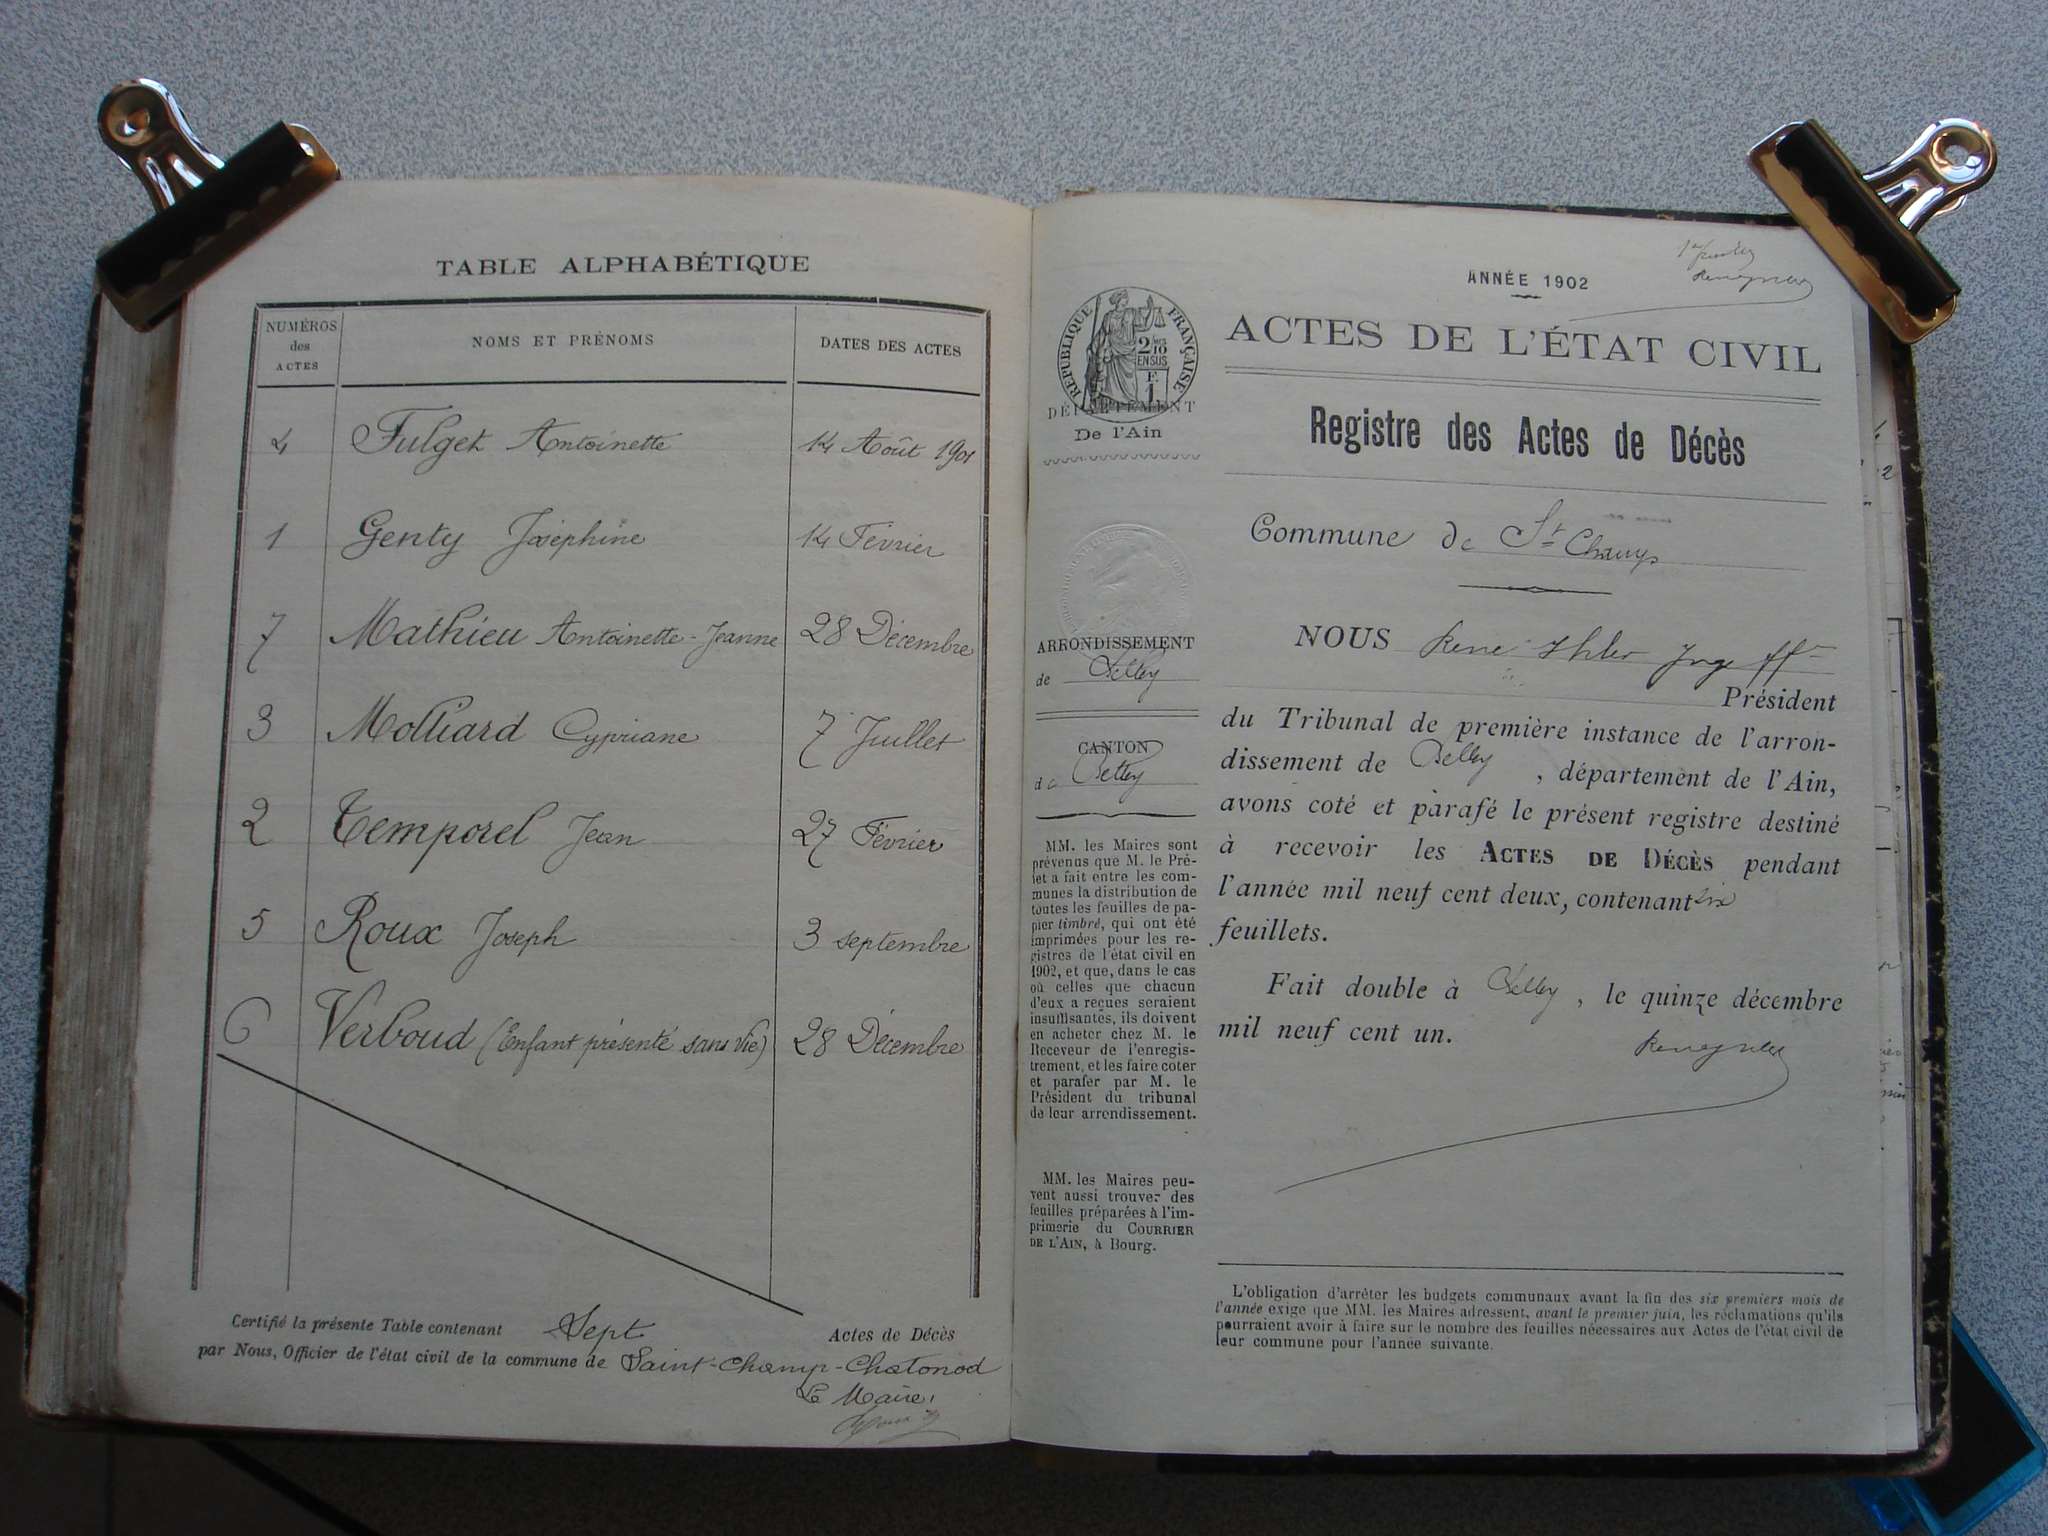 TABLE ALPHABÉTIQUE
NUMÉROS des ACTES
NOMS ET PRÉNOMS
DATES DES ACTES
4 Fulget Antoinette 14 Août 1901
1 Genty Joséphine 14 Février
7 Mathieu Antoinette-Jeanne 28 Décembre
3 Molliard Cypriane 7 Juillet
2 Temporel Jean 27 Février
5 Roux Joseph 3 septembre
6 Verboud (Enfant présenté sans vie) 28 Décembre
Certifié la présente Table contenant Sept Actes de Décès
par Nous, Officier de l'état civil de la commune de Saint-Champ-Chatonod
Le Maire,
RÉPUBLIQUE FRANÇAISE
2/10 EN SUS
F. 1
DÉPARTEMENT
De l'Ain
ARRONDISSEMENT
de Belley
CANTON
de Belley
MM. les Maires sont
prévenus que M. le Pré-
fet a fait entre les com-
munes la distribution de
toutes les feuilles de pa-
pier timbré, qui ont été
imprimées pour les re-
gistres de l'état civil en
1902, et que, dans le cas
où celles que chacun
d'eux a reçues seraient
insuffisantes, ils doivent
en acheter chez M. le
Receveur de l'enregis-
trement, et les faire coter
et parafer par M. le
Président du tribunal
de leur arrondissement.
MM. les Maires peu-
vent aussi trouver des
feuilles préparées à l'im-
primerie du COURRIER
DE L'AIN, à Bourg.
ANNÉE 1902
ACTES DE L'ÉTAT CIVIL
Registre des Actes de Décès
Commune de St Champ
NOUS René Ihler Juge ff
Président
du Tribunal de première instance de l'arron-
dissement de Belley, département de l'Ain,
avons coté et parafé le présent registre destiné
à recevoir les ACTES DE DÉCÈS pendant
l'année mil neuf cent deux, contenant six
feuillets.
Fait double à Belley, le quinze décembre
mil neuf cent un.
L'obligation d'arrêter les budgets communaux avant la fin des six premiers mois de
l'année exige que MM. les Maires adressent, avant le premier juin, les réclamations qu'ils
pourraient avoir à faire sur le nombre des feuilles nécessaires aux Actes de l'état civil de
leur commune pour l'année suivante.